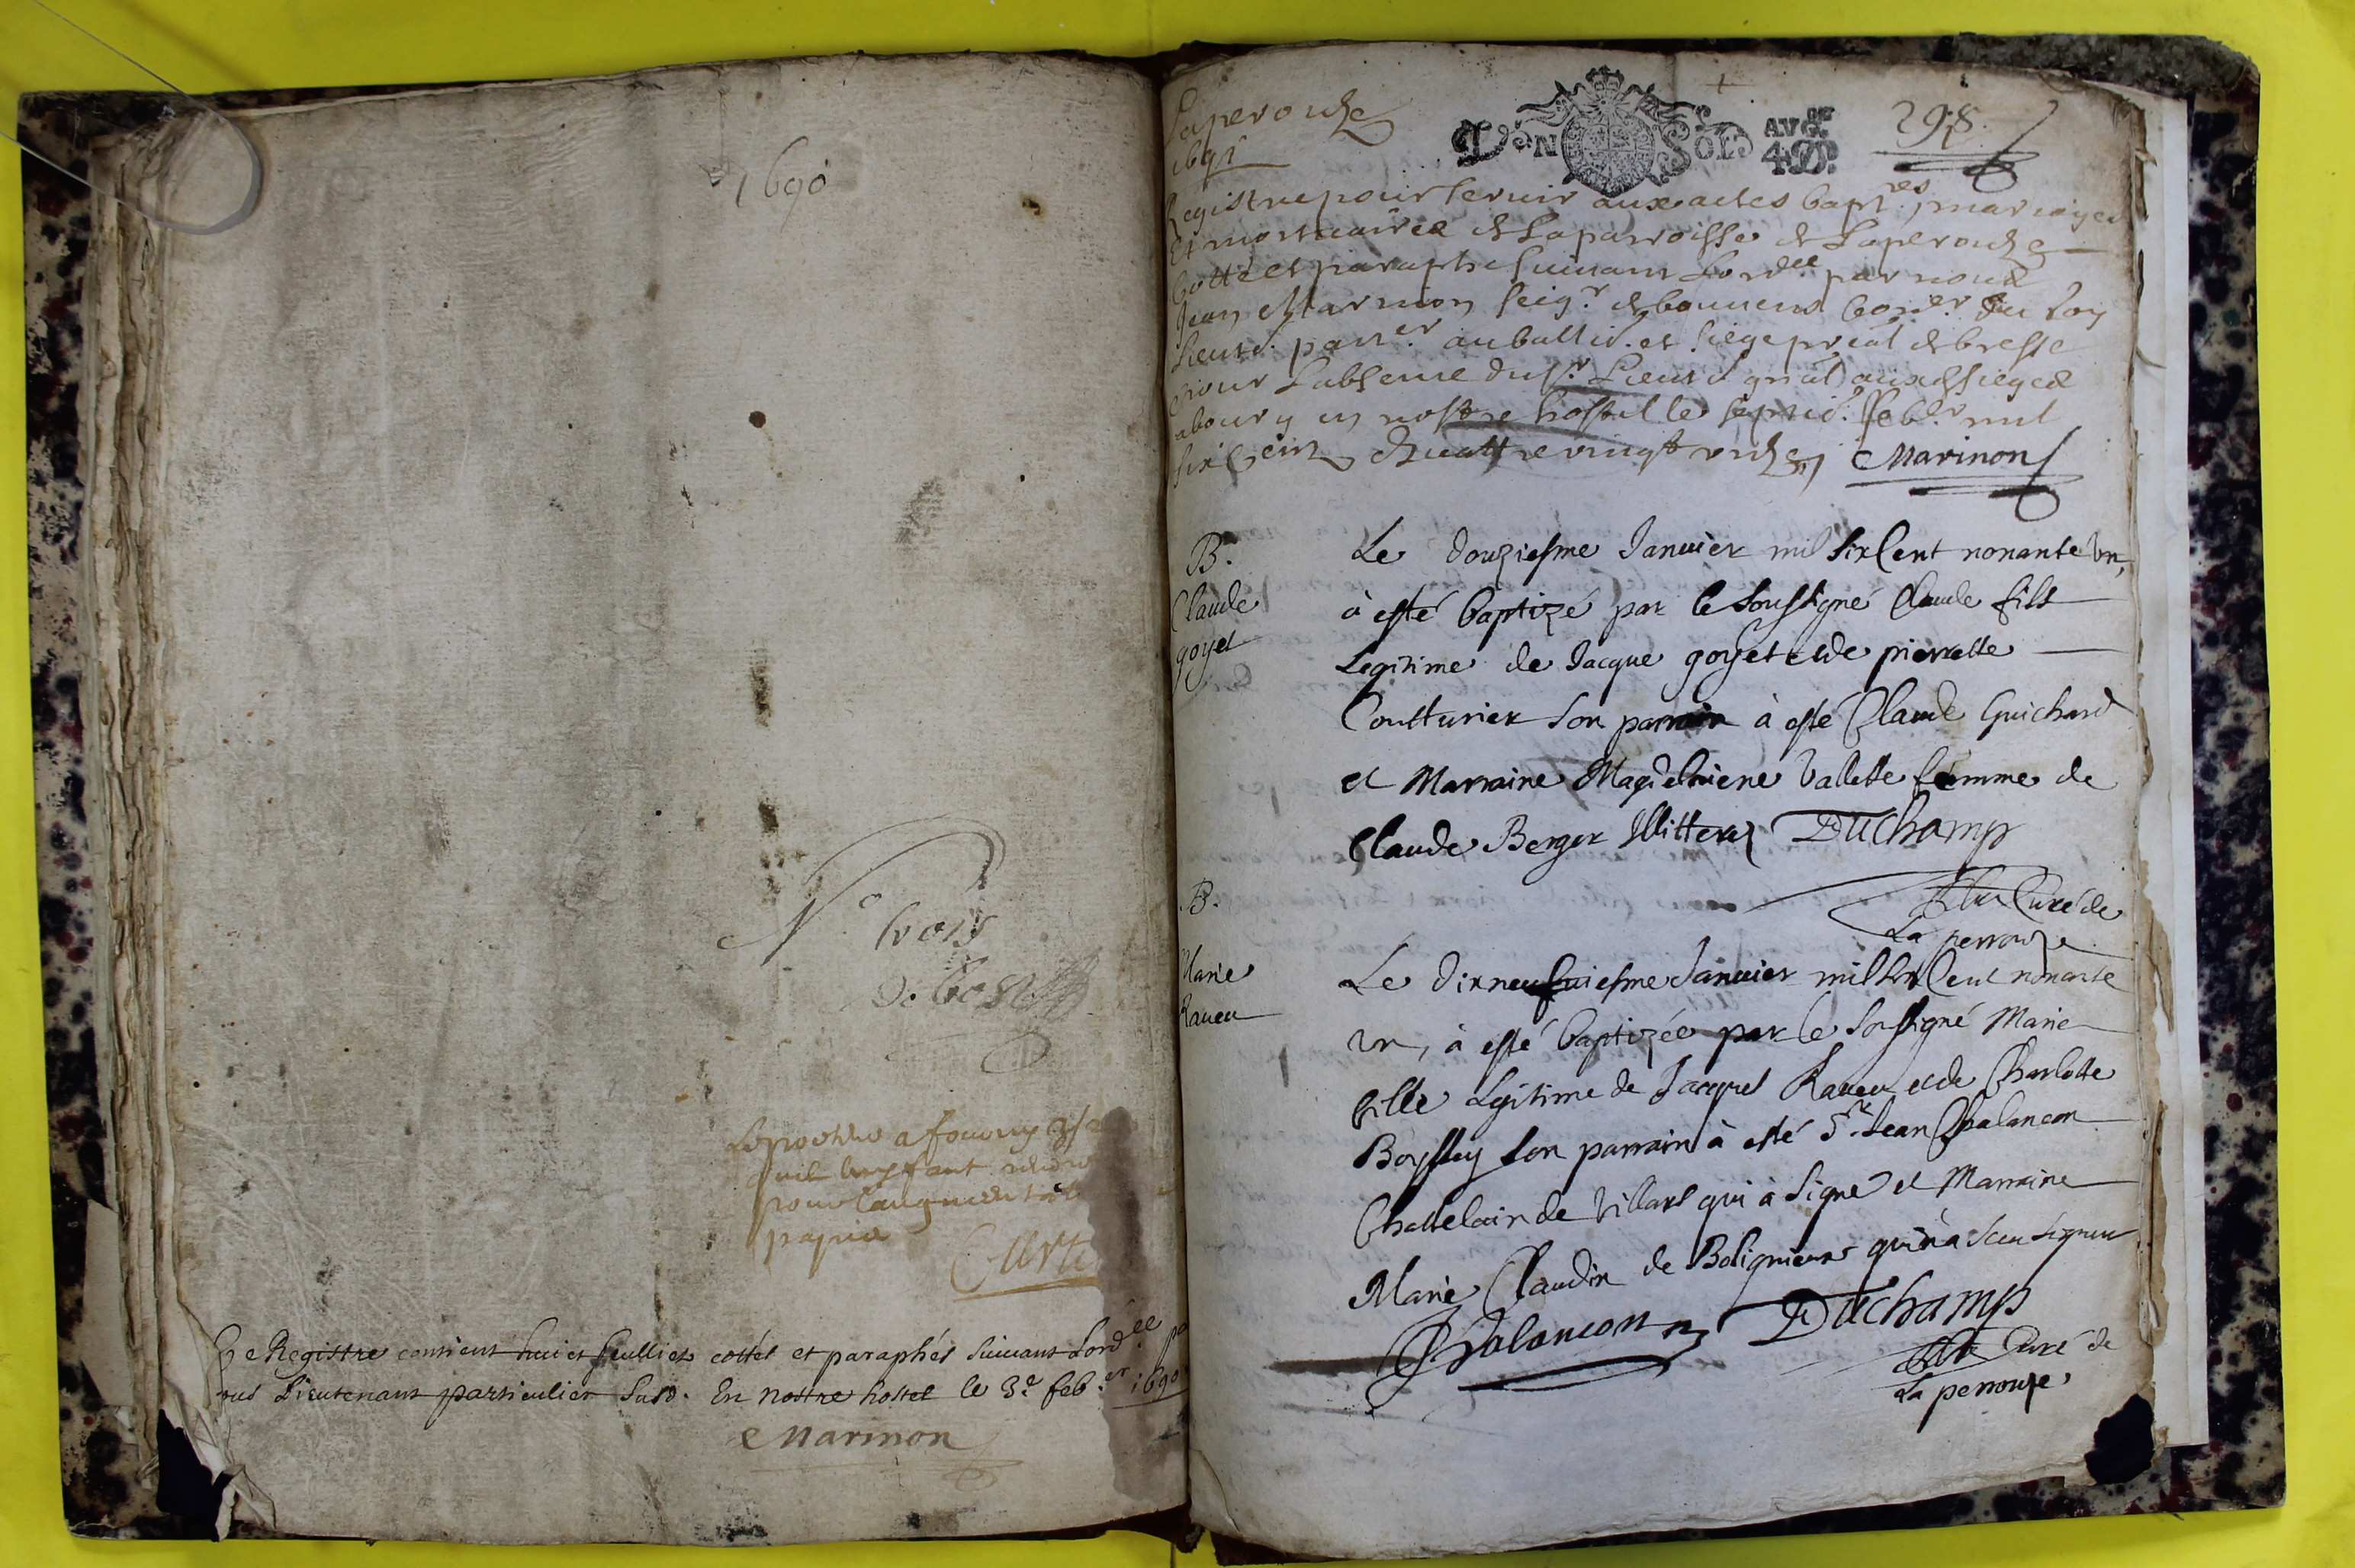 1690
N.o trois
Ce Registre contient huict feulliets cottés et paraphés suiuant Lord.ce pa
nous Lieutenant particulier susd. En nostre hostel le 3.e feb.er 1690
Marinon
Laperouze
1691
VN SOL AVG.on 4 D.
298
Registre pour seruir aux actes bapt.res mariages
Et mortuaires de La parroisse de Laperouze
Cotté et paraphé suiuant Lord.ce par nous
Jean Marinon seig.r de bouuens Con.er du Roy
Lieut. part.er au ballid. et siege préal de bresse
pour L'absence du s.r Lieut.t gnál auxd. sieges
a bourg en nostre hostel le septie. feb.er mil
six Cents Quattre vingt unze Marinon
B.
Claude
goyet
Le douziesme Januier mil six Cent nonante vn,
à esté baptizé par le Soussigné Claude fils
Legitime de Jacque goyet et de pierrette
Coutturier son parrain à esté Claude Guichard
et Marraine Magdelaiene Vallette femme de
Claude Berger Duchamp
Curé de
La perrouze
B.
Marie
Raueu
Le dixneufuiesme Januier mil six Cent nonante
vn, à esté baptizée par le Soussigné Marie
fille Legitime de Jacques Raueu et de Charlotte
son parrain à esté S.r Jean Chalancon
Chattelain de Villars qui à signé et Marraine
Marie Claudin de Bolignieux qui n'a sceu signer
Chalancon Duchamp
Curé de
La perrouze